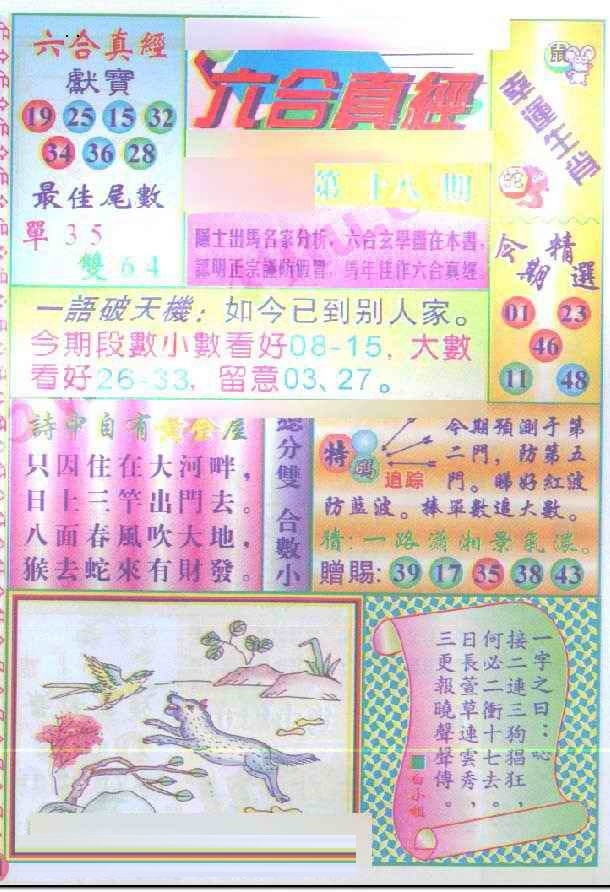 六合真經
獻寶
19 25 15 32
34 36 28
最佳尾數
單 3 5
雙 6 4
六合真經
第十八期
隱士出馬名家分析，六合玄學盡在本書，
認明正宗謹防假冒，馬年佳作六合真經。
鼠
幸運生肖
蛇
今期精選
01 23
46
11 48
一語破天機：如今已到别人家。
今期段數小數看好08-15，大數
看好26-33，留意03、27。
詩中自有黃金屋
只因住在大河畔，
日上三竿出門去。
八面春風吹大地，
猴去蛇來有財發。
總分雙 合數小
特碼追踪
今期預測于第
二門，防第五
門。睇好紅波
防藍波。捧單數追大數。
猜：一路瀟湘景氣濃。
贈賜：39 17 35 38 43
一字之曰：吣
接二連三狗猖狂，
何必二衝十七去。
日長萱草連雲秀，
三更報曉聲聲傳。
白小姐